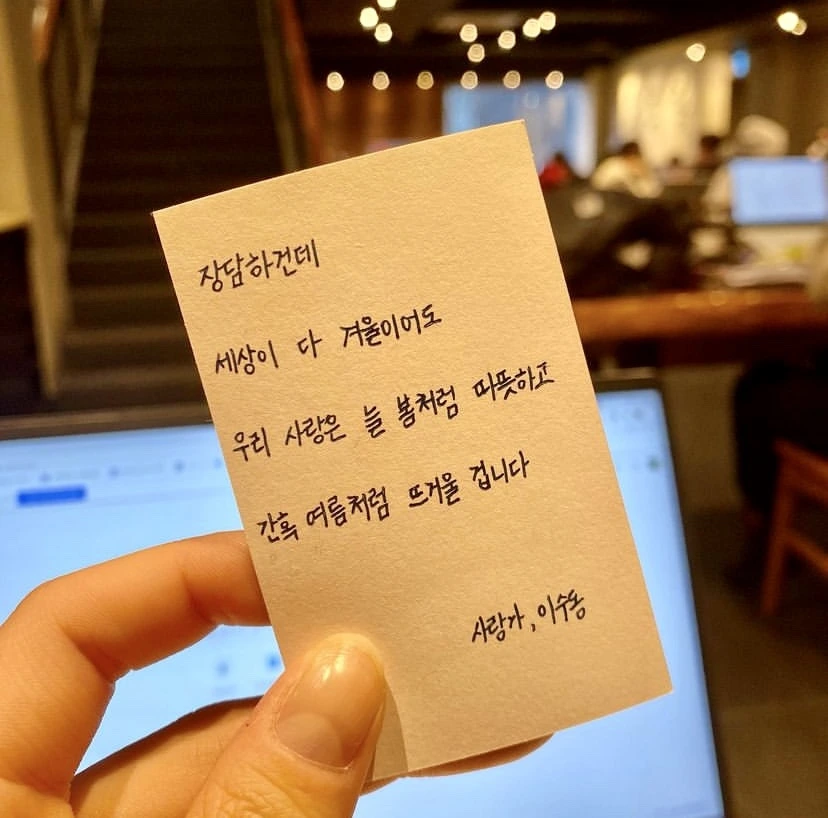 장담하건데
세상이 다 겨울이어도
우리 사랑은 늘 봄처럼 따뜻하고
간혹 여름처럼 뜨거울 겁니다
사랑가, 이수동